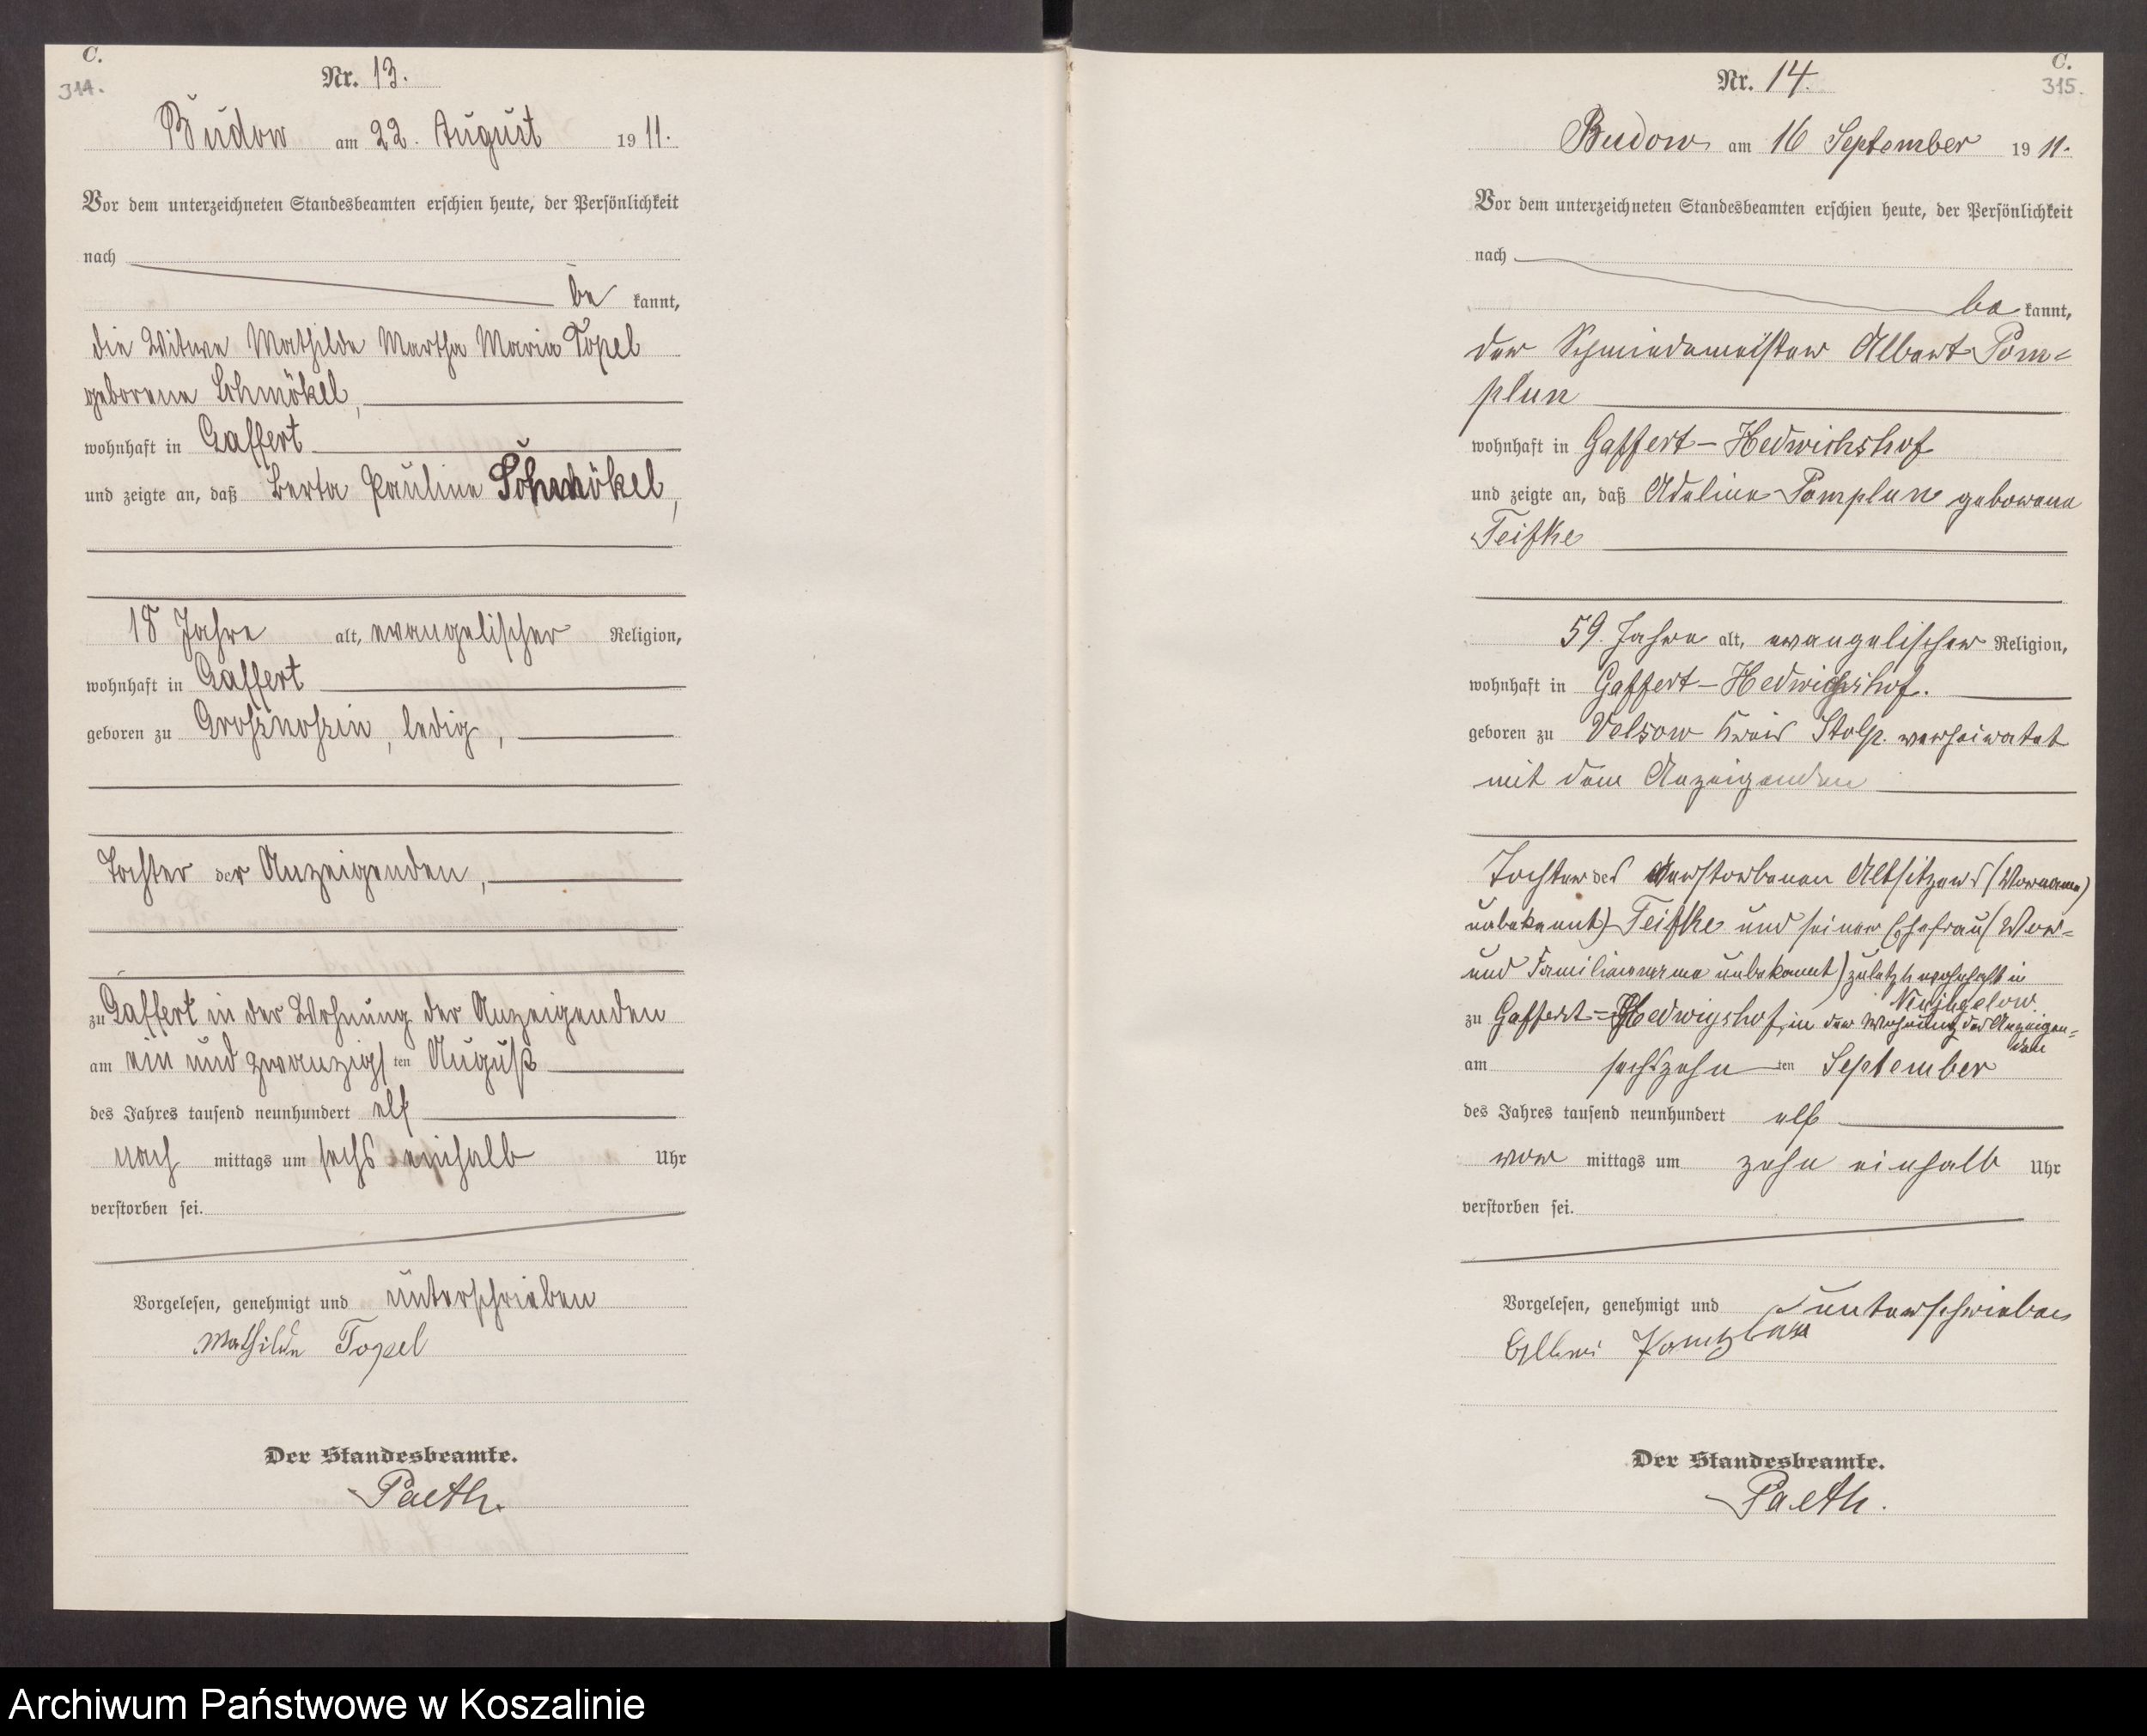 C.
314.
Nr. 13.
Budow am 22. August 1911.
Vor dem unterzeichneten Standesbeamten erschien heute, der Persönlichkeit
nach
be kannt,
die Witwe Mathilde Martha Maria Topel
geborene Schmökel,
wohnhaft in Gaffert
und zeigte an, daß Berta Pauline Schmökel,
18 Jahre alt, evangelischer Religion,
wohnhaft in Gaffert
geboren zu Großnoßin, ledig,
Tochter der Anzeigenden,
zu Gaffert in der Wohnung der Anzeigenden
am ein und zwanzigsten August
des Jahres tausend neunhundert elf
nach mittags um sechs einhalb Uhr
verstorben sei.
Vorgelesen, genehmigt und unterschrieben
Mathilde Topel
Der Standesbeamte.
Paeth.
C.
315.
Nr. 14.
Budow am 16 September 1911.
Vor dem unterzeichneten Standesbeamten erschien heute, der Persönlichkeit
nach
be kannt,
der Schmiedemeister Albert Pom=
plun
wohnhaft in Gaffert-Hedwichshof
und zeigte an, daß Adeline Pomplun geborene
Teifke
59. Jahre alt, evangelischer Religion,
wohnhaft in Gaffert-Hedwigshof.
geboren zu Velsow Kreis Stolp. verheiratet
mit dem Anzeigenden
Tochter des verstorbenen Altsitzers (Vorname)
unbekannt) Teifke und seiner Ehefrau (Vor=
und Familienname unbekannt) zuletzt wohnhaft in
Neujugelow.
zu Gaffert=Hedwigshof, in der Wohnung des Anzeigen=
den
am sechszehnten September
des Jahres tausend neunhundert elf
vor mittags um zehn einhalb Uhr
verstorben sei.
Vorgelesen, genehmigt und unterschrieben
Pomplun
Der Standesbeamte.
Paeth.
Archiwum Państwowe w Koszalinie